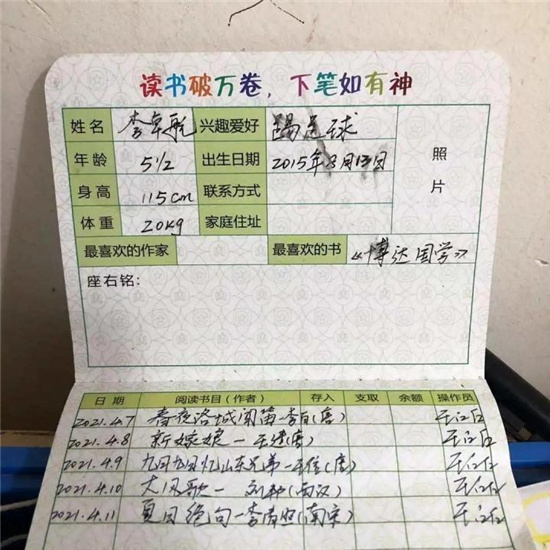 读书破万卷,下笔如有神
姓名 李卓航 兴趣爱好 踢足球
年龄 5 1/2 出生日期 2015年8月13日 照片
身高 115cm 联系方式
体重 20kg 家庭住址
最喜欢的作家 最喜欢的书 《博达国学》
座右铭:
日期 阅读书目(作者) 存入 支取 余额 操作员
2021.4.7 春夜洛城闻笛-李白(唐)
2021.4.8 新嫁娘-王建(唐)
2021.4.9 九月九日忆山东兄弟-王维(唐)
2021.4.10 大风歌-刘邦(西汉)
2021.4.11 夏日绝句-李清照(南宋)